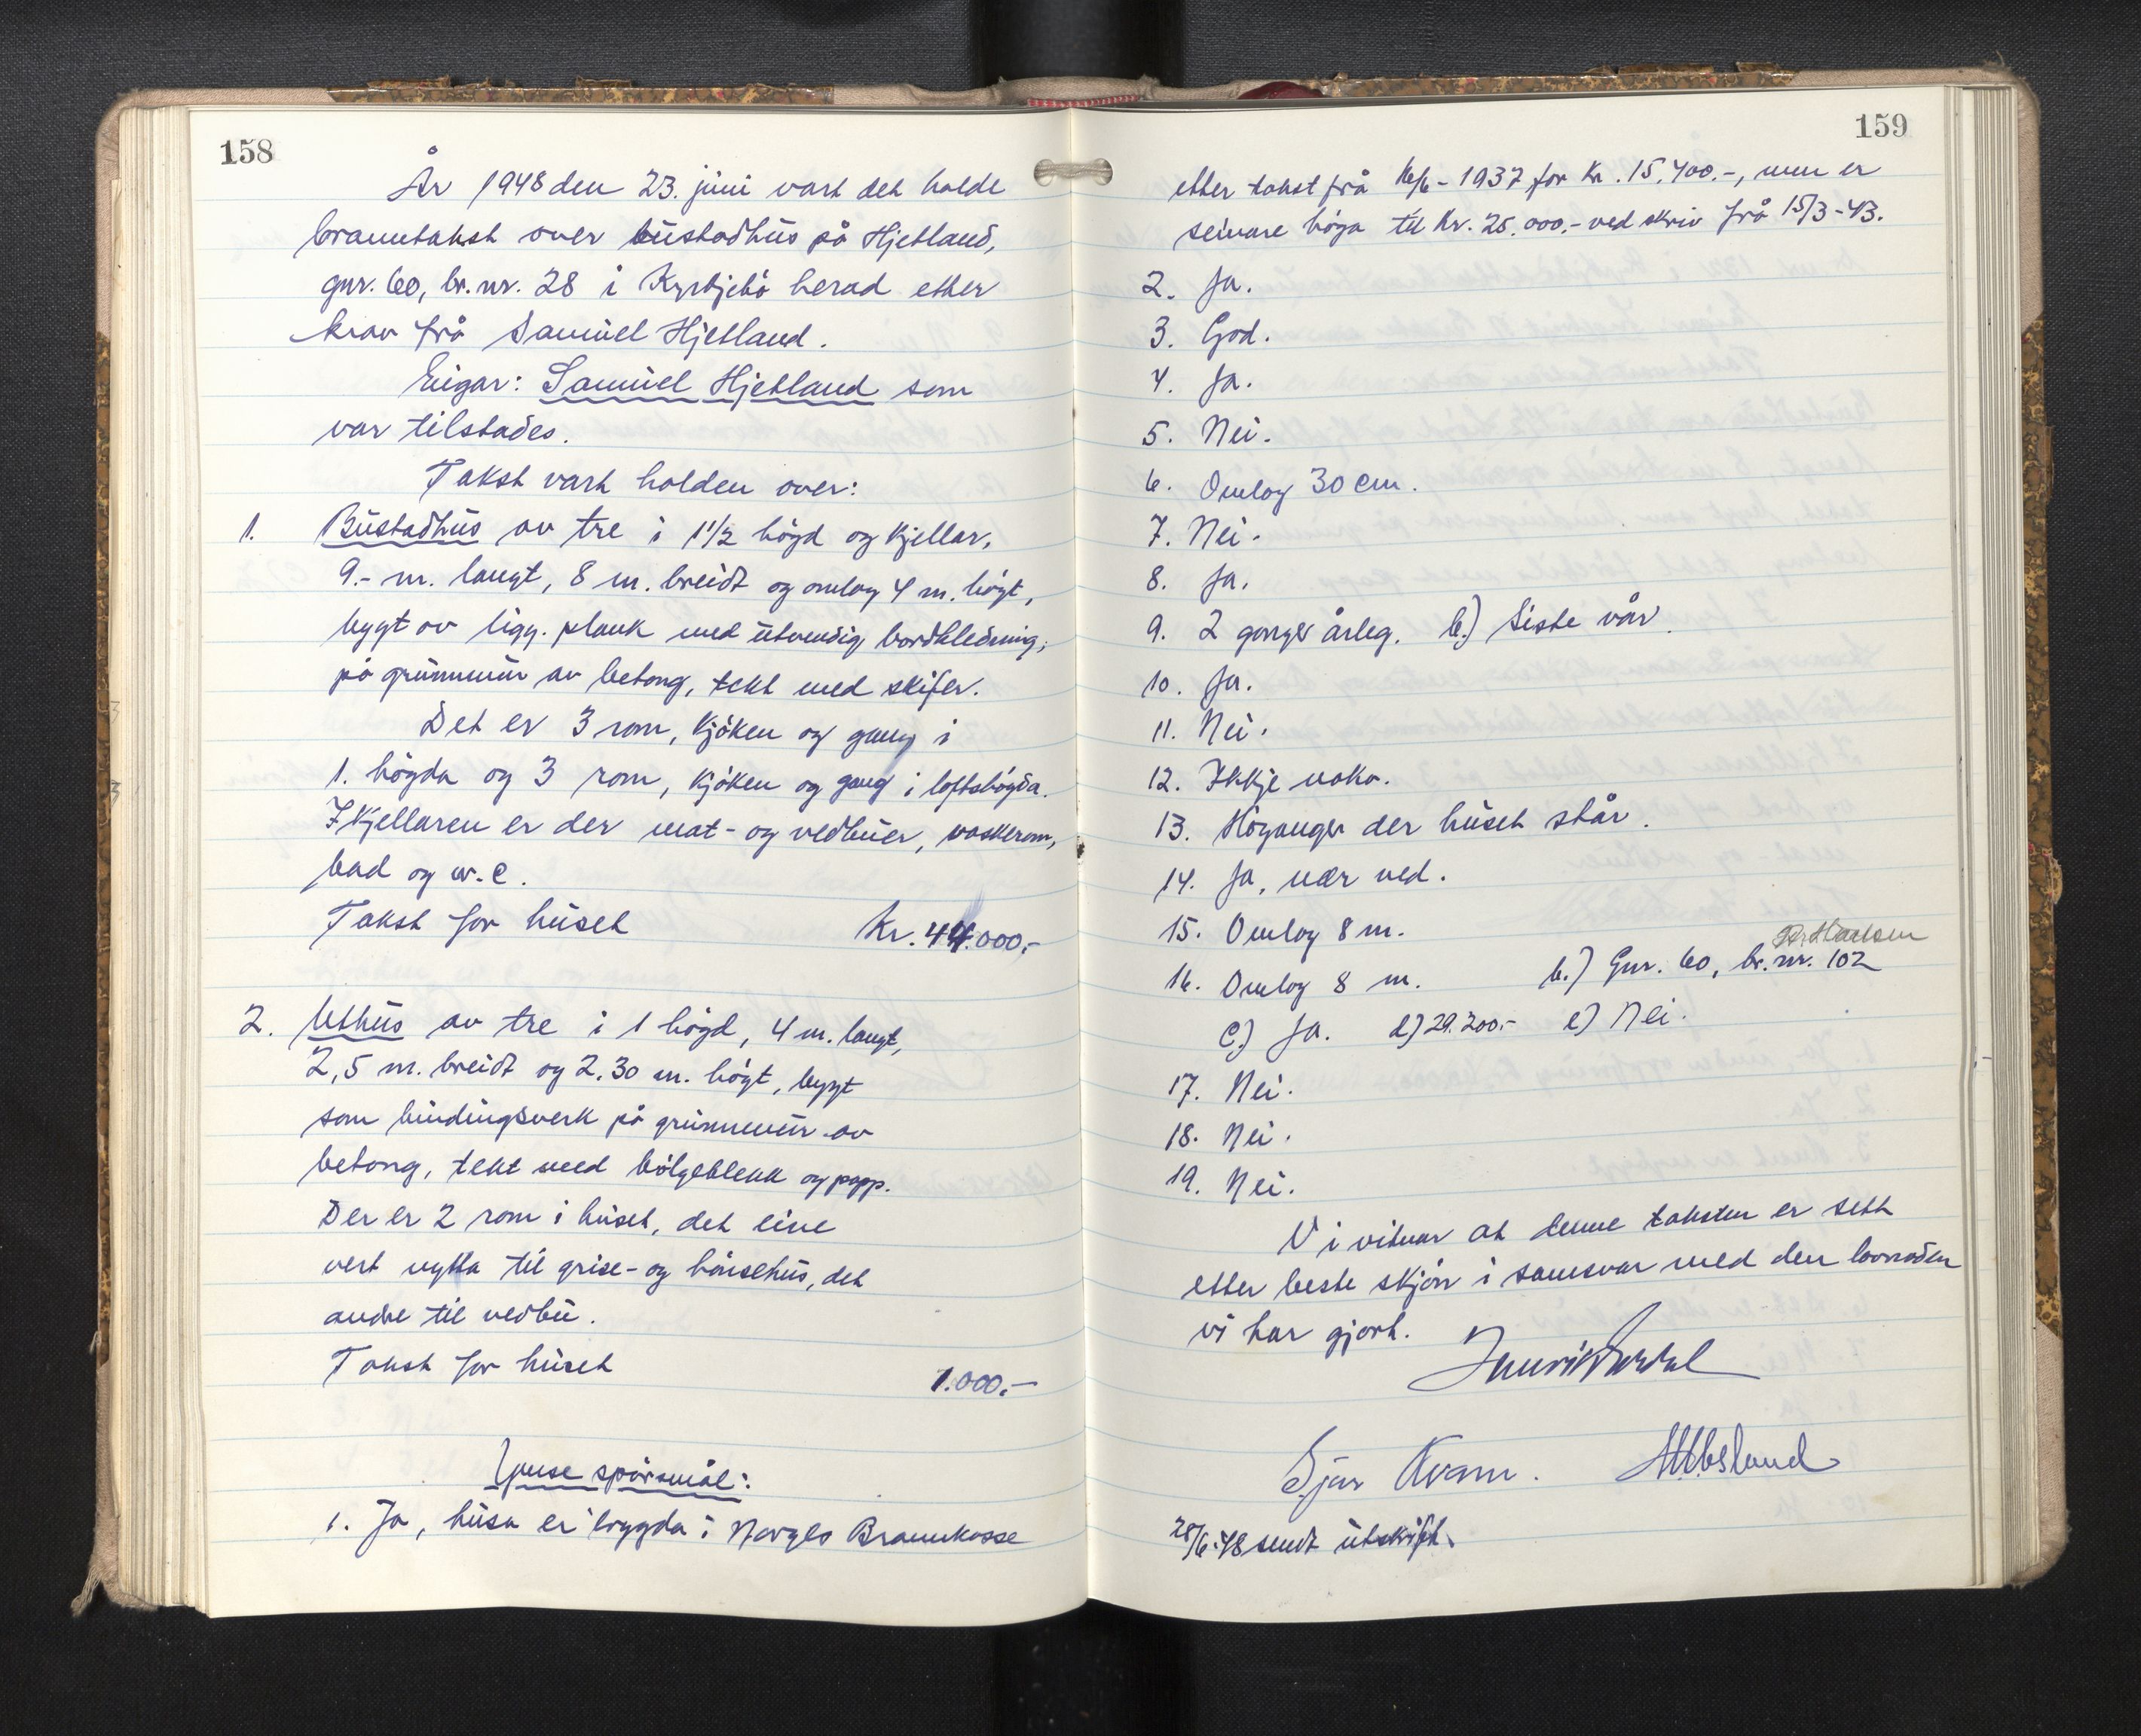 158
År 1948 den 23. juni vart det halde
branntakst over bustadhus på Hjetland,
gnr. 60, br.nr. 28 i Kyrkjebö herad etter
krav frå Samuel Hjetland.
Eigar: Samuel Hjetland som
var tilstades.
Takst vart halden over:
1. Bustadhus av tre i 1 1/2 högd og kjellar,
9.- m. langt, 8 m. breidt og omlag 4 m. högt,
bygt av ligg. plank med utvendig bordkledning,
på grunnmur av betong, tekt med skifer.
Det er 3 rom, kjöken og gang i
1. högda og 3 rom, kjöken og gang i loftshögda.
I kjellaren er der mat- og vedbuer, vaskerom,
bad og w.c.
Takst for huset Kr. 44.000,-
2. Uthus av tre i 1 högd, 4 m. langt,
2,5 m. breidt og 2,30 m. högt, bygt
som bindingsverk på grunnmur av
betong, tekt med bölgeblekk og papp.
Der er 2 rom i huset, det eine
vert nytta til grise- og hönsehus, det
andre til vedbu.
Takst for huset 1.000,-
Ymse spörsmål:
1. Ja, husa er trygda i Norges Brannkasse
159
etter takst frå 16/6-1937 for kr. 15.400.-, men er
seinare höga til Kr. 25.000,- ved skriv frå 15/3-43.
2. Ja.
3. God.
4. Ja.
5. Nei.
6. Omlag 30 cm.
7. Nei.
8. Ja.
9. 2 gonger årleg. b.) Siste vår.
10. Ja.
11. Nei.
12. Ikkje noko.
13. Höyanger der huset står.
14. Ja, nær ved.
15. Omlag 8 m.
16. Omlag 8 m. b.) Gnr. 60, br.nr. 102
c.) Ja. d) 29.200.- e) Nei.
17. Nei.
18. Nei.
19. Nei.
Vi vitnar at denne taksten er sett
etter beste skjön i samsvar med den lovnaden
vi har gjort.
Sjur Kvam.
28/6-48 sendt utskrift.